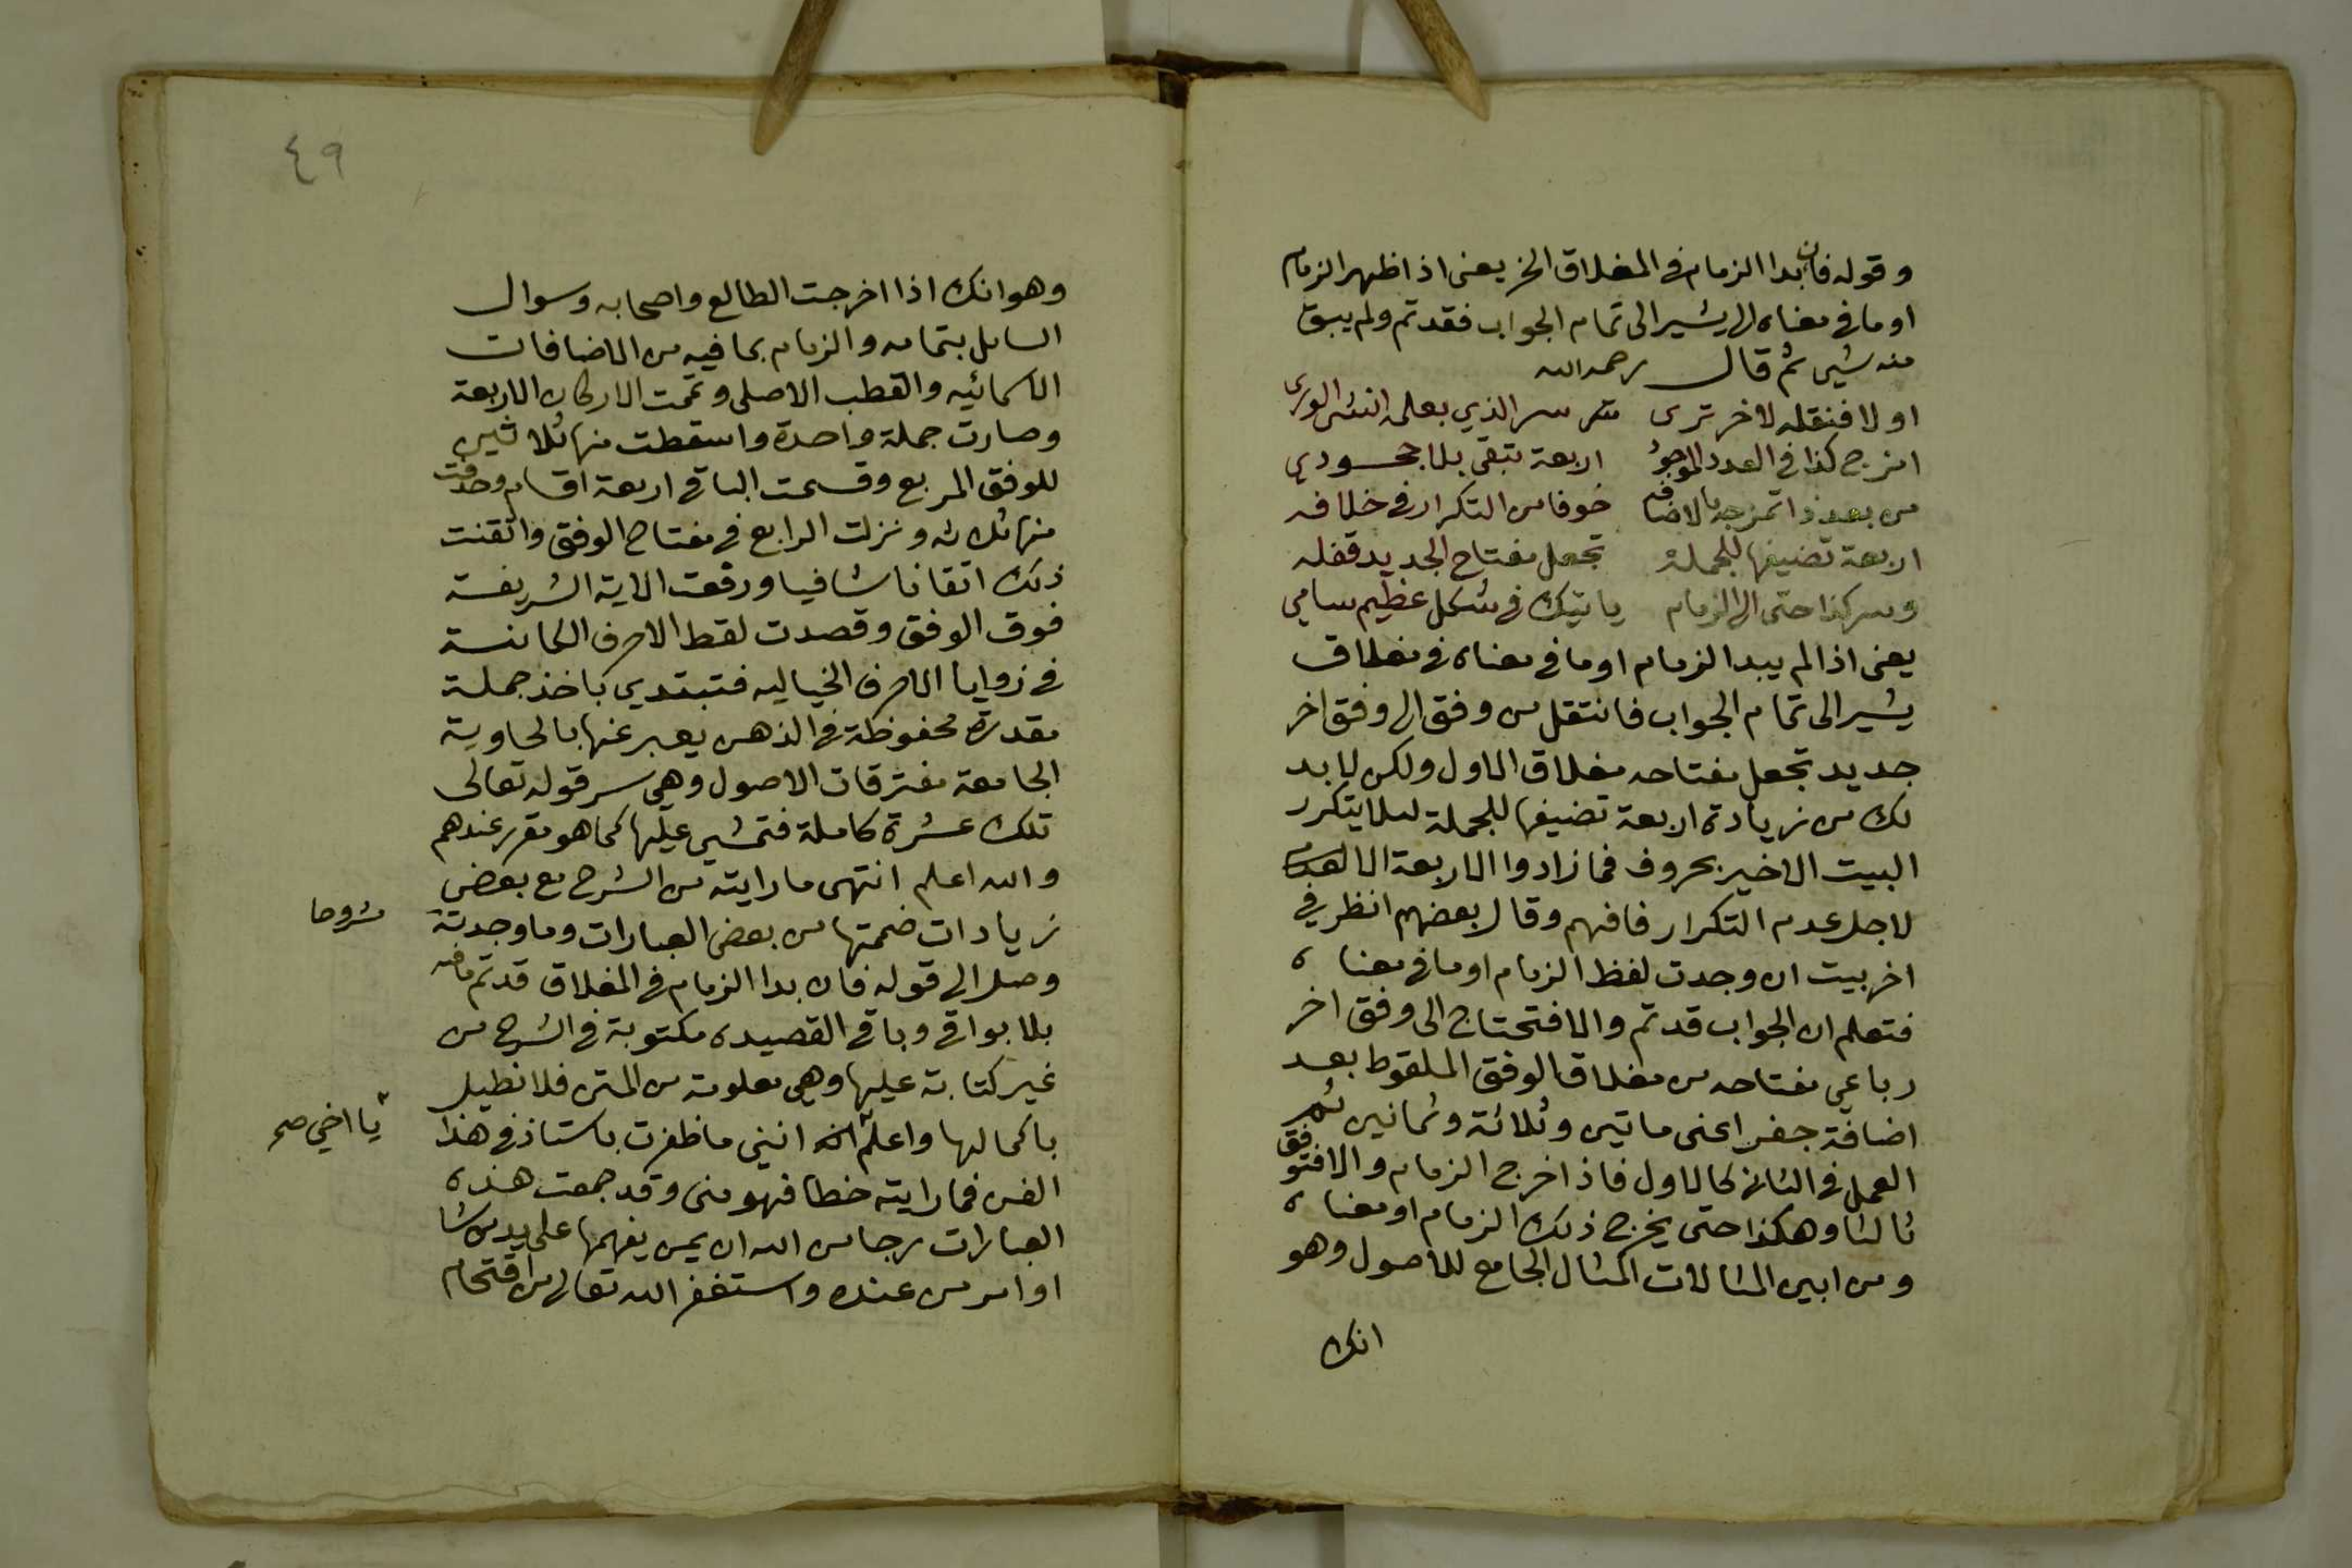 وقوله فان بدا الزمام في المغلاق الخ يعني اذا ظهر الزمام
او ما في معناه الى يشير الى تمام الجواب فقد تم ولم يبق
منه شيى ثم قال رحمه الله
اولا فنقله لاخر ترى سر الذي بعلمه انشى الورى
امزج كذا في العدد الموجود اربعة تبقى بلا جحودي
من بعد ذا تمزجه بالاضافه خوفا من التكرار في خلافه
اربعة تضيفها للجمله تجعل مفتاح الجديد قفله
وسر كذا حتى الى الزمام ياتيك في شكل عظيم سامي
يعني اذا لم يبدا الزمام او ما في معناه في مغلاق
يشير الى تمام الجواب فانتقل من وفق الى وفق اخر
جديد تجعل مفتاحه مغلاق الاول ولكن لا بد
لك من زيادة اربعة تضيفها للجملة لىلا يتكرر
البيت الاخير بحروف فما زادوا الاربعة الا
لاجل عدم التكرار فافهم وقال بعضهم انظر في
اخر بيت ان وجدت لفظ الزمام او ما في معناه
فتعلم ان الجواب قد تم والا فتحتاج الى وفق اخر
رباعي مفتاحه من مغلاق الوفق الملقوط بعد
اضافة جفر اعني ماتين وثلاثة وثمانين ثم
العمل في الثاني كالاول فاذا خرج الزمام والا فتوفق
ثالثا وهكذا حتى يخرج ذلك الزمام او معناه
ومن ابين المثالات المثال الجامع للاصول وهو
انك
٤٩
وهو انك اذا اخرجت الطالع واصحابه وسوال
السايل بتمامه والزمام بما فيه من الاضافات
الاسمائيه والقطب الاصلي وتممت الاركان الاربعة
وصارت جملة واحدة واسقطت منها ثلاثين
للوفق المربع وقسمت الباقي اربعة اقسام وحذفت
منها ثلاثه ونزلت الرابع في مفتاح الوفق واتقنت
ذلك اتقانا شافيا ورقمت الاية الشريفة
فوق الوفق وقصدت لقط الاحرف الكامنة
في زوايا الاحرف الخياليه فتبتدي باخذ جملة
مقدرة محفوظة في الذهن يعبر عنها بالحاوية
الجامعة مفترقات الاصول وهي سر قوله تعالى
تلك عشرة كاملة فتمشي عليها كما هو مقرر عندهم
والله اعلم انتهى ما رايته من الشرح مع بعض
زيادات ضممتها من بعض العبارات وما وجدته
مشروحا
وصل الى قوله فان بدا الزمام في المغلاق قد تم ما فيه
بلا بواقي وباقي القصيده مكتوبة في الشرح من
غير كتابة عليها وهي معلومة من المتن فلا نطيل
باكمالها واعلم انه انني ما ظفرت باستاذ في هذا
يا اخي صح
الفن فما رايته خطا فهو مني وقد جمعت هذه
العبارات رجا من الله ان يمن يفهمها على يد من شا
او امر من عنده واستغفر الله تعالى من اقتحام